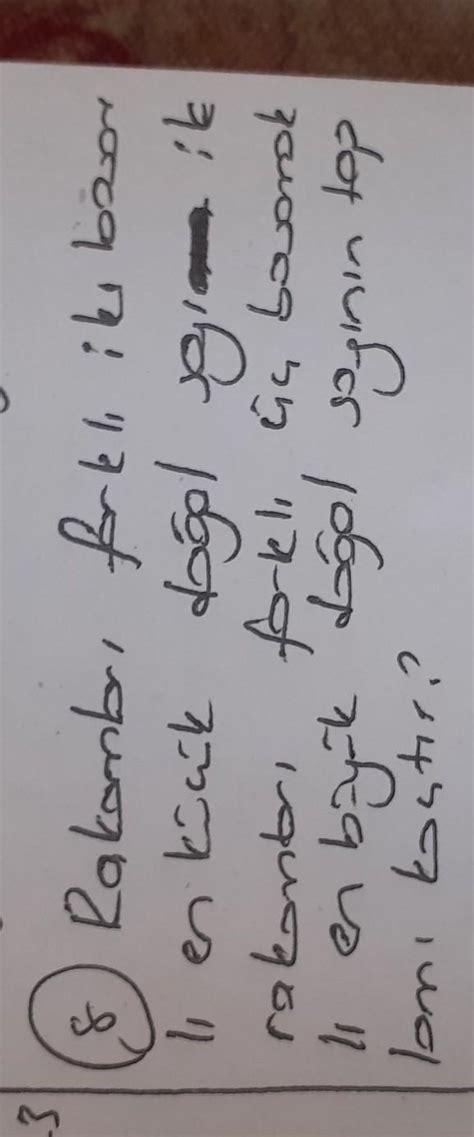 8 Rakamları farklı iki basam
lı en küçük doğal sayı ile
rakamları farklı üç basamak
lı en büyük doğal sayının top
lamı kaçtır?
3